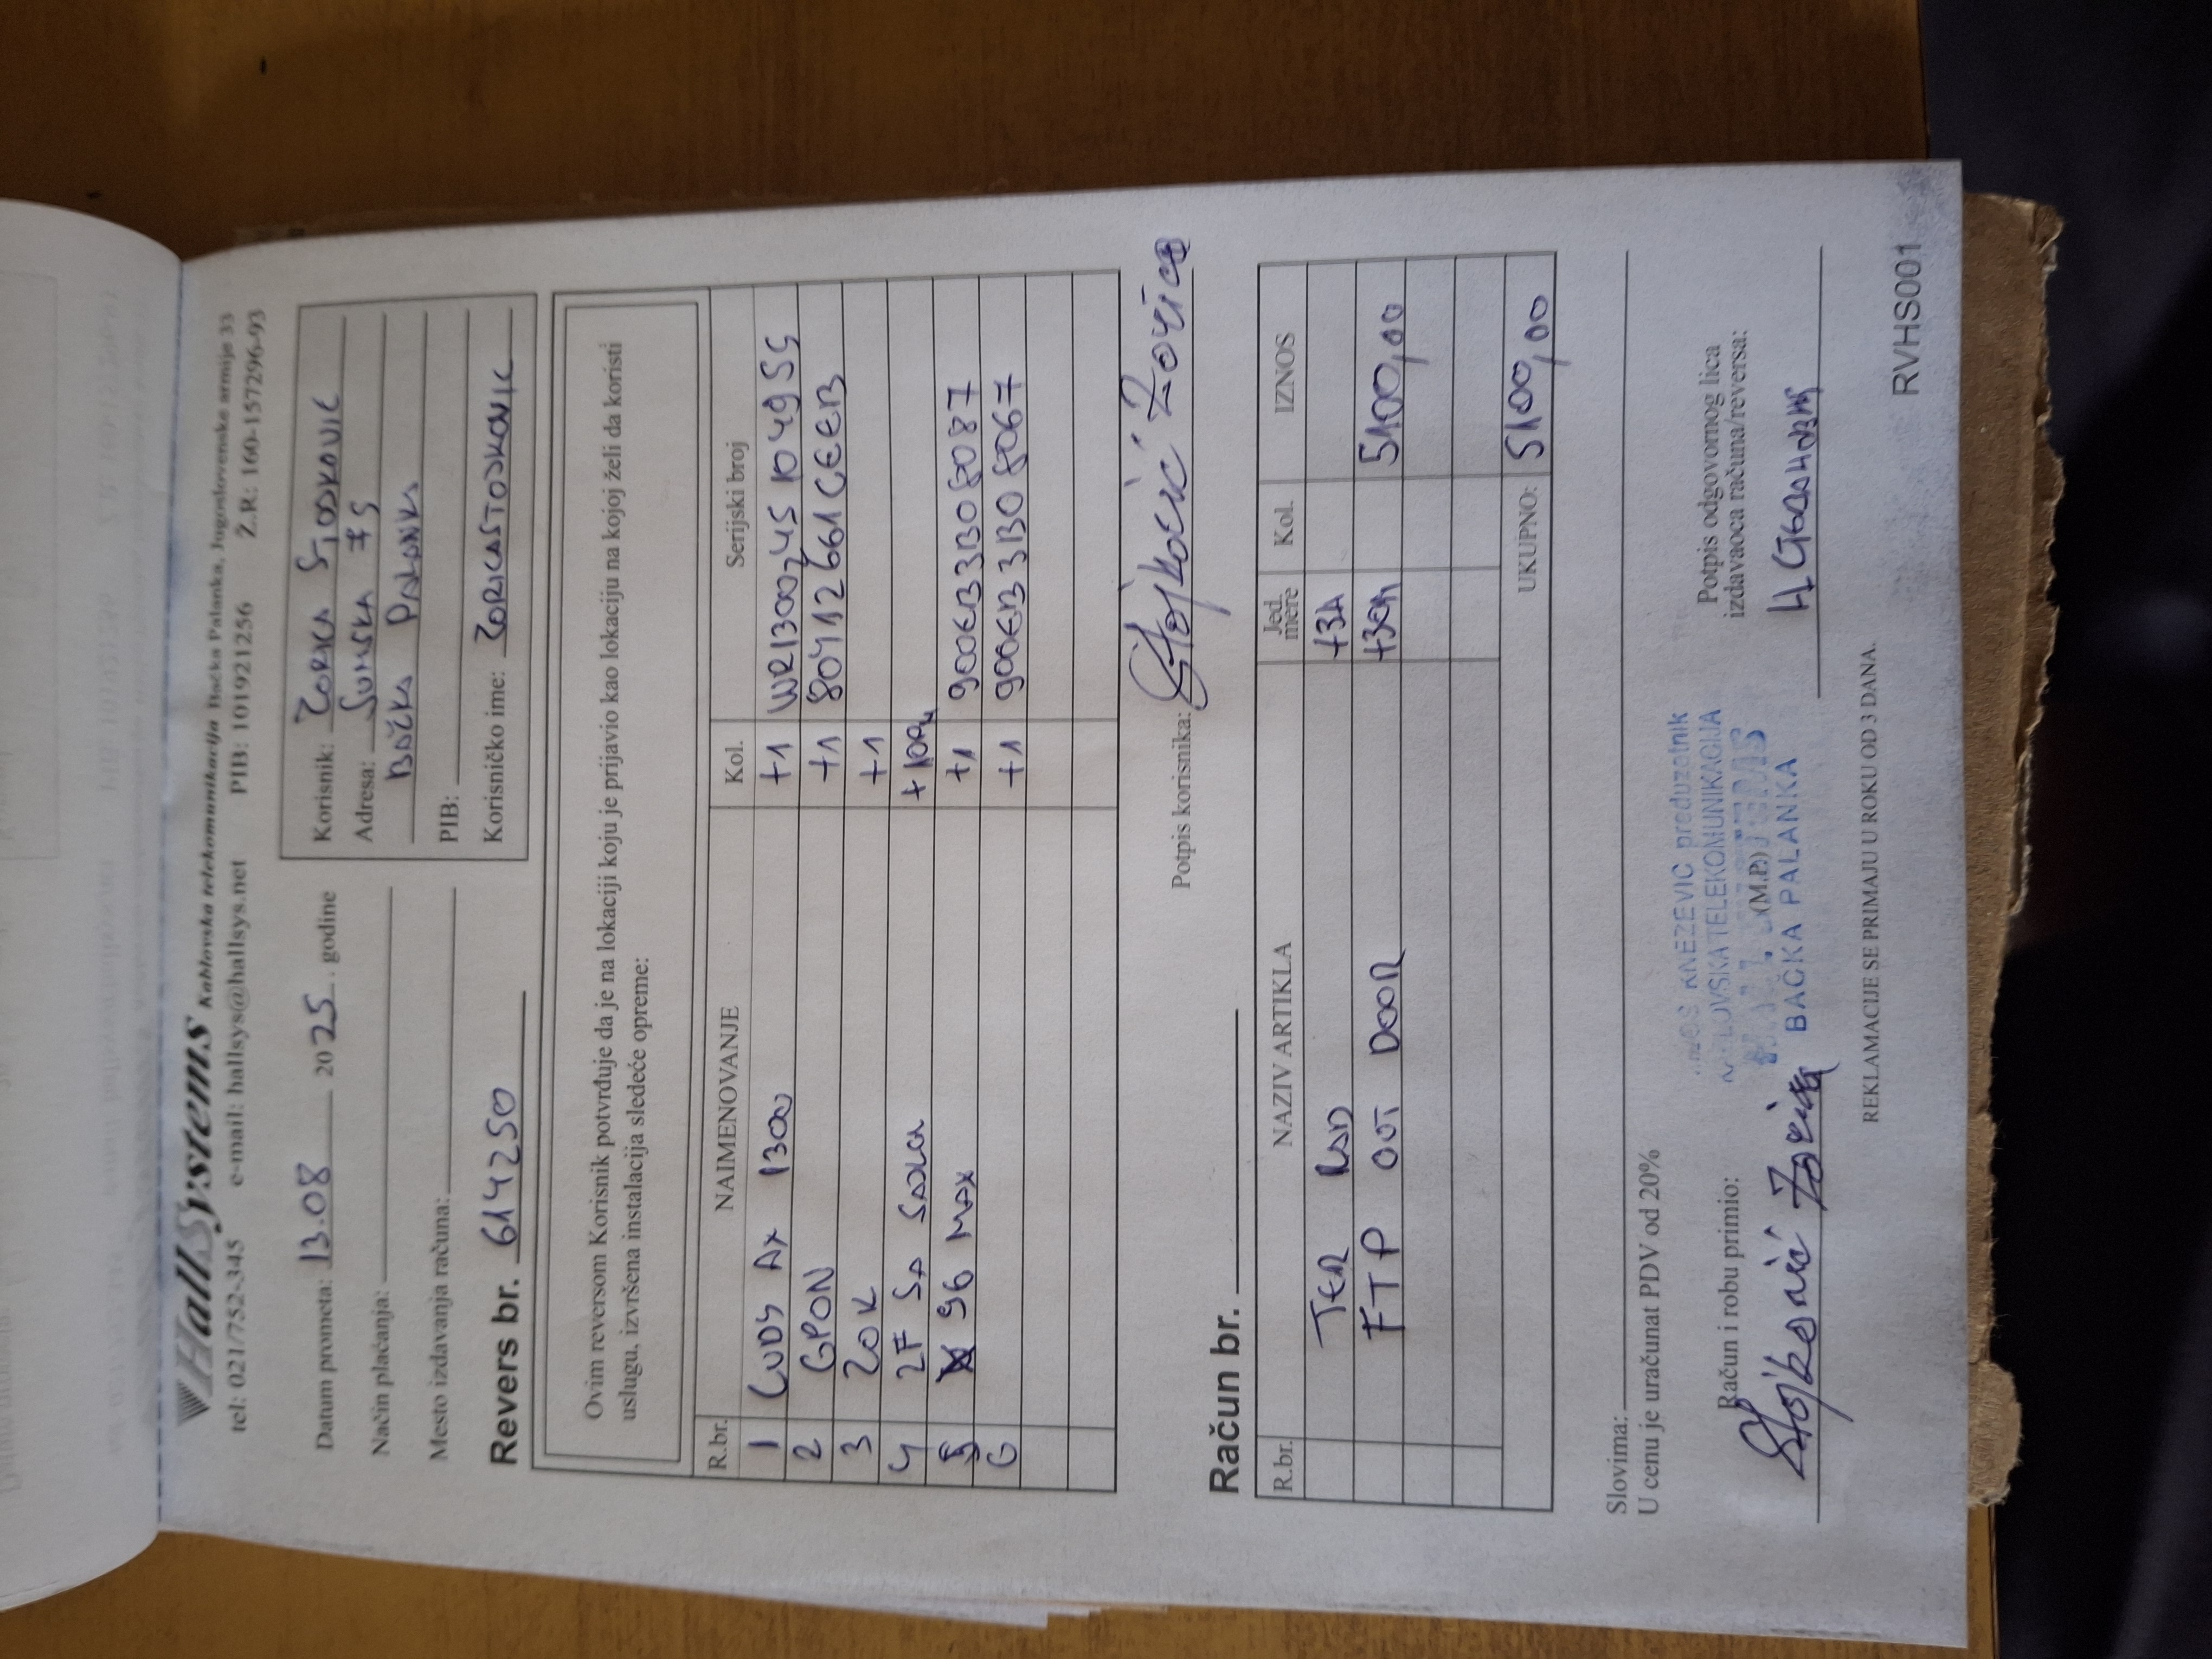 HallSystems Kablovska telekomunikacija Bačka Palanka, Jugoslovenske armije 33
tel: 021/752-345 e-mail: hallsys@hallsys.net PIB: 101921256 Ž.R: 160-157296-93
Datum prometa: 13.08 2025. godine
Način plaćanja:
Mesto izdavanja računa:
Revers br. 614250
Korisnik: ZORICA STOJKOVIC
Adresa: ŠUMSKA 75
BAČKA PALANKA
PIB:
Korisničko ime: ZORICASTOJKOVIC
Ovim reversom Korisnik potvrđuje da je na lokaciji koju je prijavio kao lokaciju na kojoj želi da koristi
uslugu, izvršena instalacija sledeće opreme:
R.br. NAIMENOVANJE Kol. Serijski broj
1 CUDY AX 1300 +1
2 GPON +1 80412661CEEB
3 ZOK +1
4 2F SA SAJLA
5 96 MAX +1 900EB33B08087
6 +1 900EB33B08067
Potpis korisnika: Stojković Zorica
Račun br.
R.br. NAZIV ARTIKLA Jed. mere Kol. IZNOS
FTP OUT DOOR +30m 5100,00
UKUPNO: 5100,00
Slovima:
U cenu je uračunat PDV od 20%
Račun i robu primio:
Stojković Zorica
KNEZEVIC preduzetnik
TELEKOMUNIKACIJA
(M.P.)
BAČKA PALANKA
Potpis odgovornog lica
izdavaoca računa/reversa:
REKLAMACIJE SE PRIMAJU U ROKU OD 3 DANA.
RVHS001